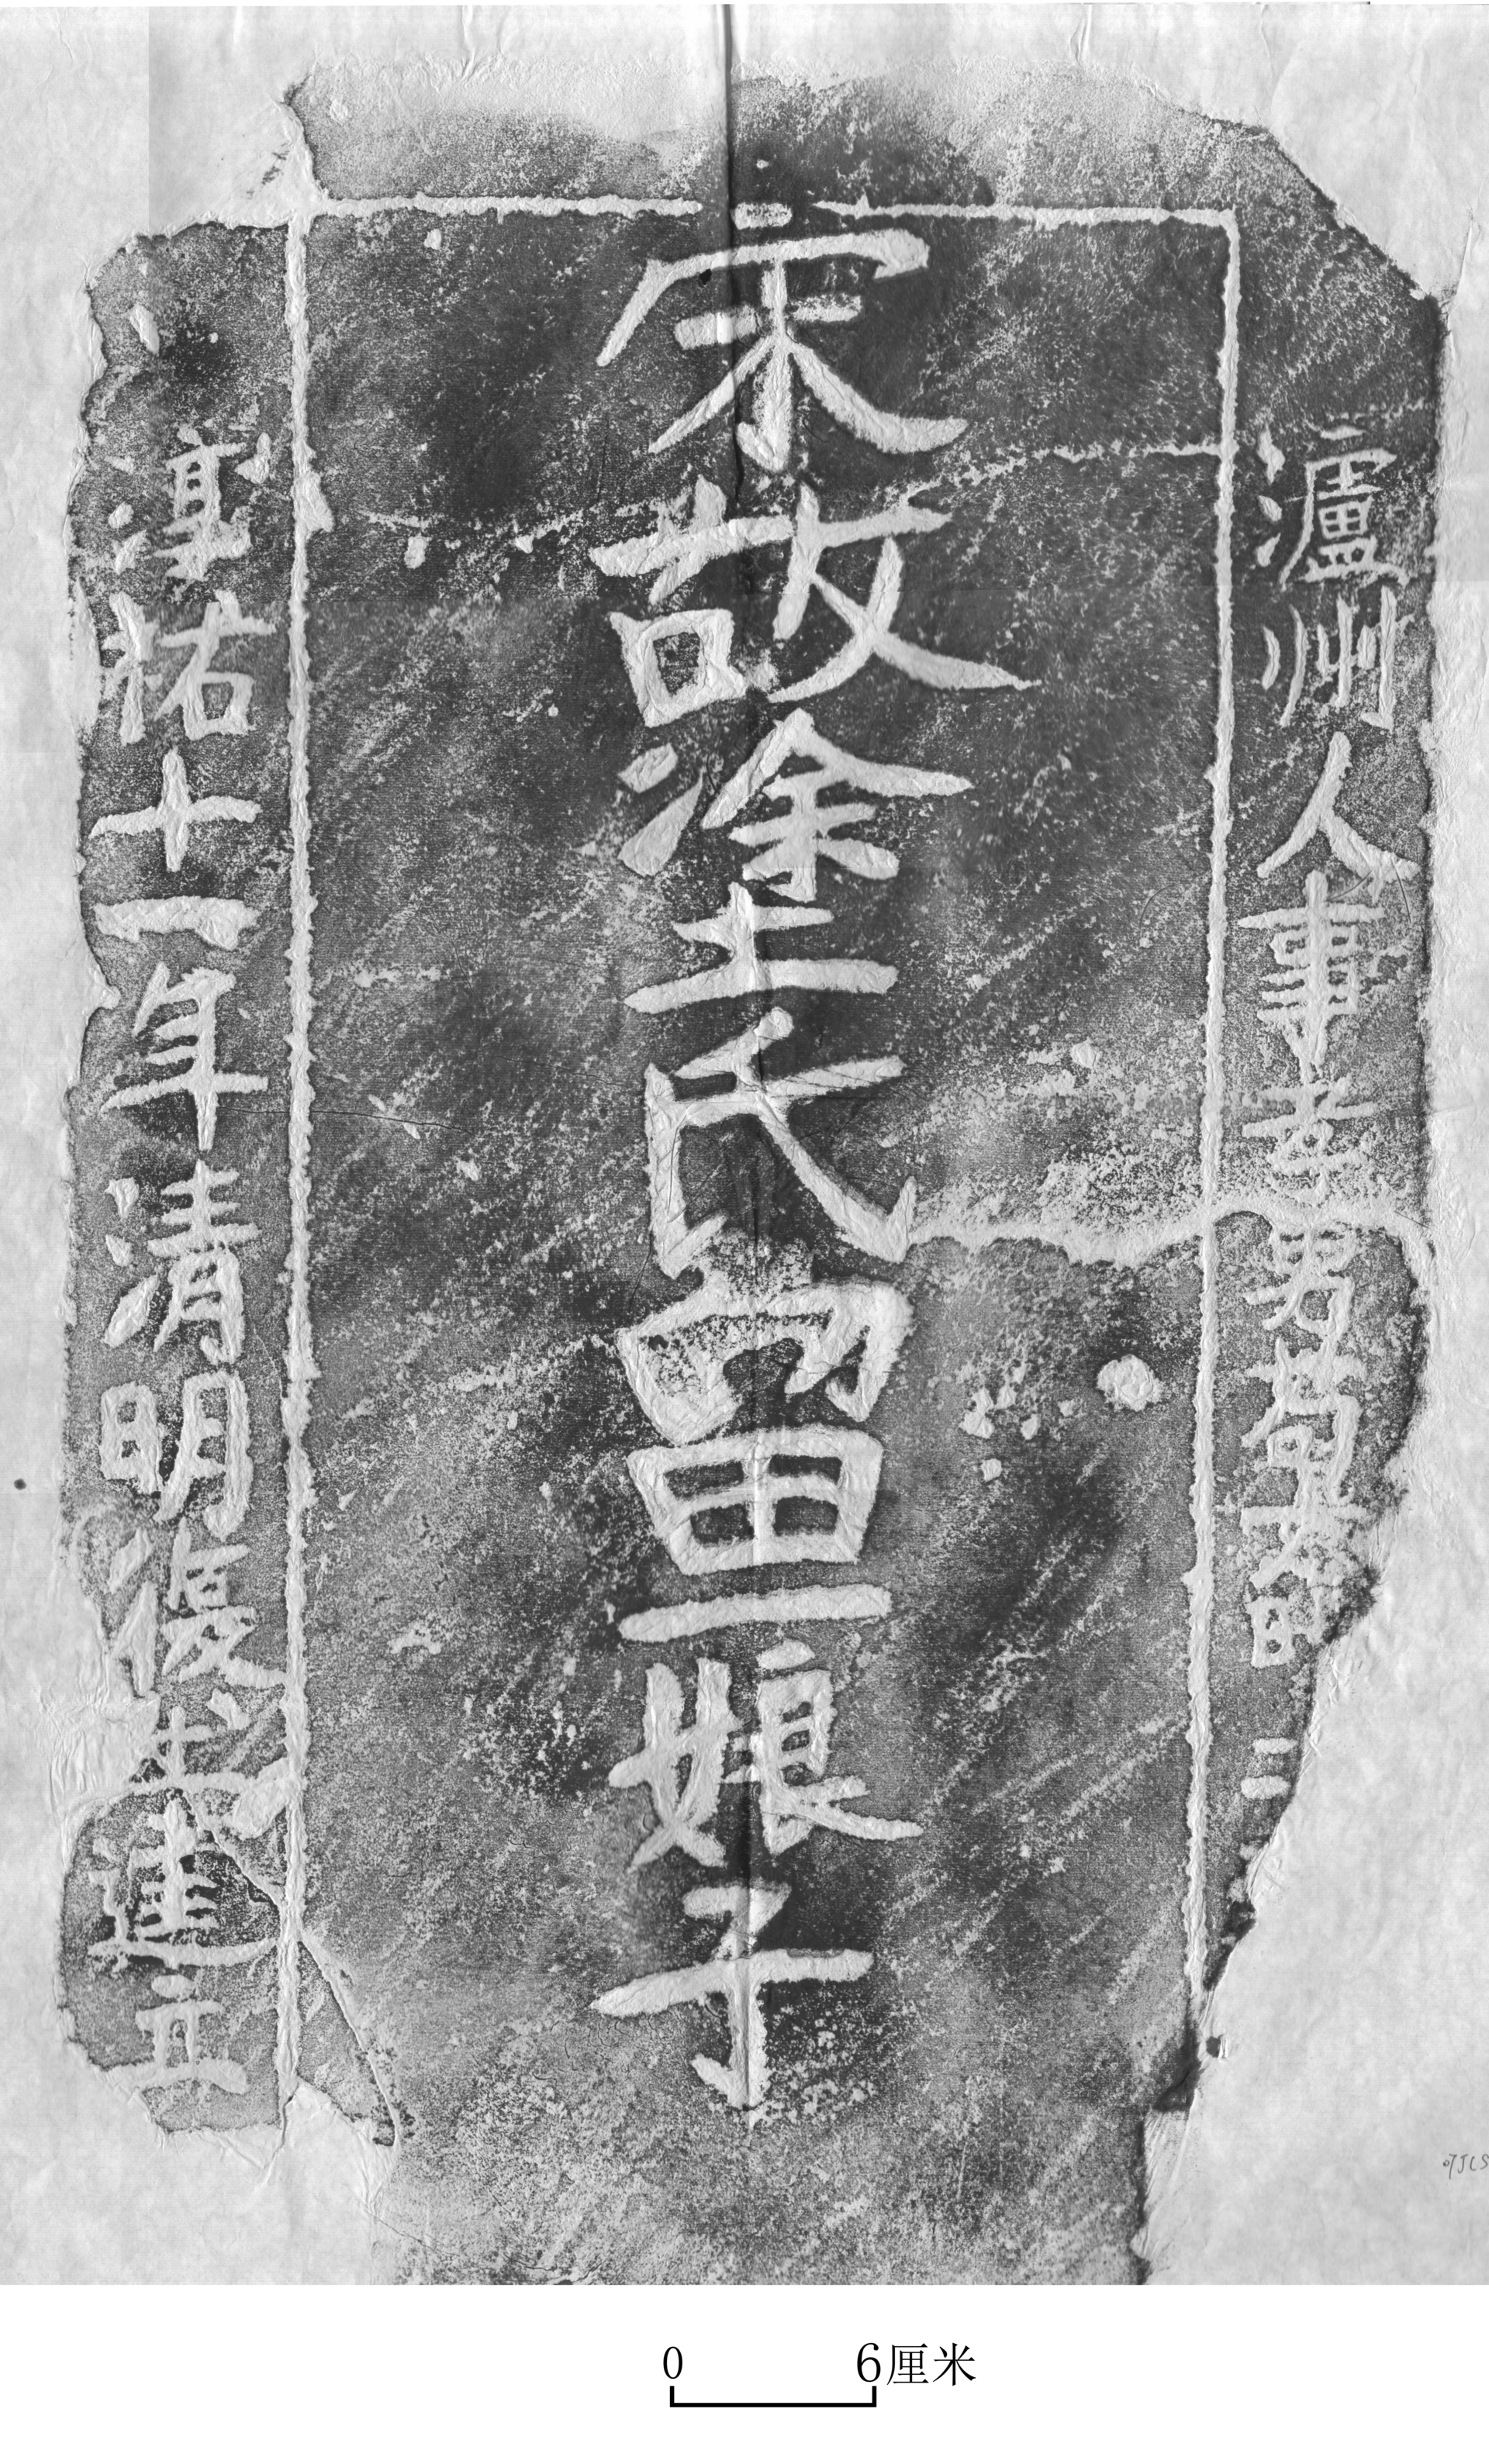 瀘州人事孝男苟時二
宋故塗氏留一娘子
淳祐十一年清明復建立
07JCS
0 6厘米